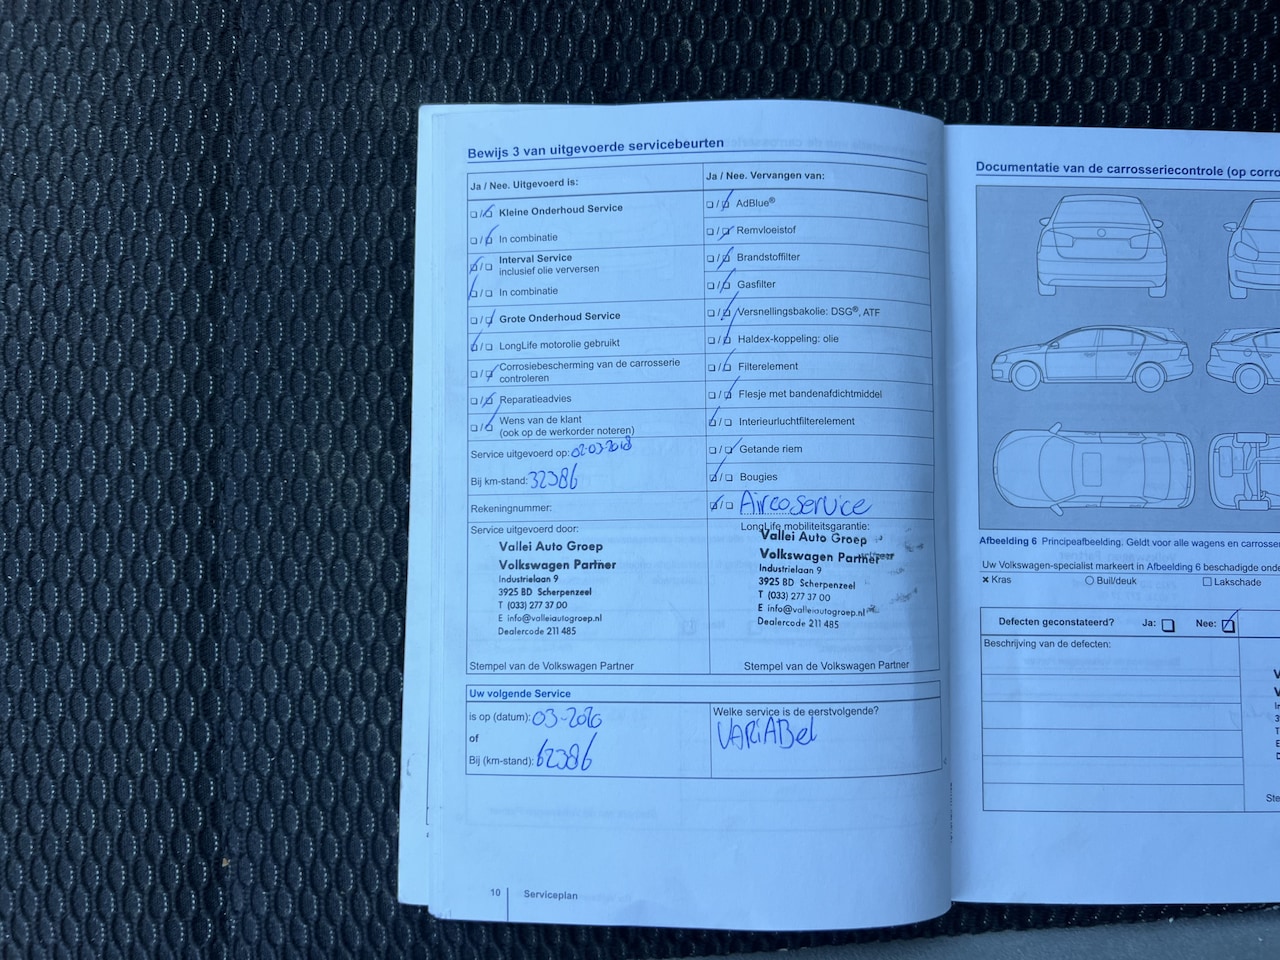 Bewijs 3 van uitgevoerde servicebeurten
Ja / Nee. Uitgevoerd is:
Kleine Onderhoud Service
In combinatie
Interval Service
inclusief olie verversen
In combinatie
Grote Onderhoud Service
LongLife motorolie gebruikt
Corrosiebescherming van de carrosserie
controleren
Reparatieadvies
Wens van de klant
(ook op de werkorder noteren)
Service uitgevoerd op: 02-03-2018
Bij km-stand: 32386
Rekeningnummer:
Service uitgevoerd door:
Vallei Auto Groep
Volkswagen Partner
Industrielaan 9
3925 BD Scherpenzeel
T (033) 277 37 00
E info@valleiautogroep.nl
Dealercode 211 485
Stempel van de Volkswagen Partner
Ja / Nee. Vervangen van:
AdBlue®
Remvloeistof
Brandstoffilter
Gasfilter
Versnellingsbakolie: DSG®, ATF
Haldex-koppeling: olie
Filterelement
Flesje met bandenafdichtmiddel
Interieurluchtfilterelement
Getande riem
Bougies
Aircoservice
LongLife mobiliteitsgarantie:
Vallei Auto Groep
Volkswagen Partner
Industrielaan 9
3925 BD Scherpenzeel
T (033) 277 37 00
E info@valleiautogroep.nl
Dealercode 211 485
Stempel van de Volkswagen Partner
Uw volgende Service
is op (datum): 03-2020
of
Bij (km-stand): 62386
Welke service is de eerstvolgende?
VARIABel
10
Serviceplan
Documentatie van de carrosseriecontrole (op corro
Afbeelding 6 Principeafbeelding. Geldt voor alle wagens en carrosser
Uw Volkswagen-specialist markeert in Afbeelding 6 beschadigde onde
Kras
Buil/deuk
Lakschade
Defecten geconstateerd? Ja: Nee:
Beschrijving van de defecten:
Ste